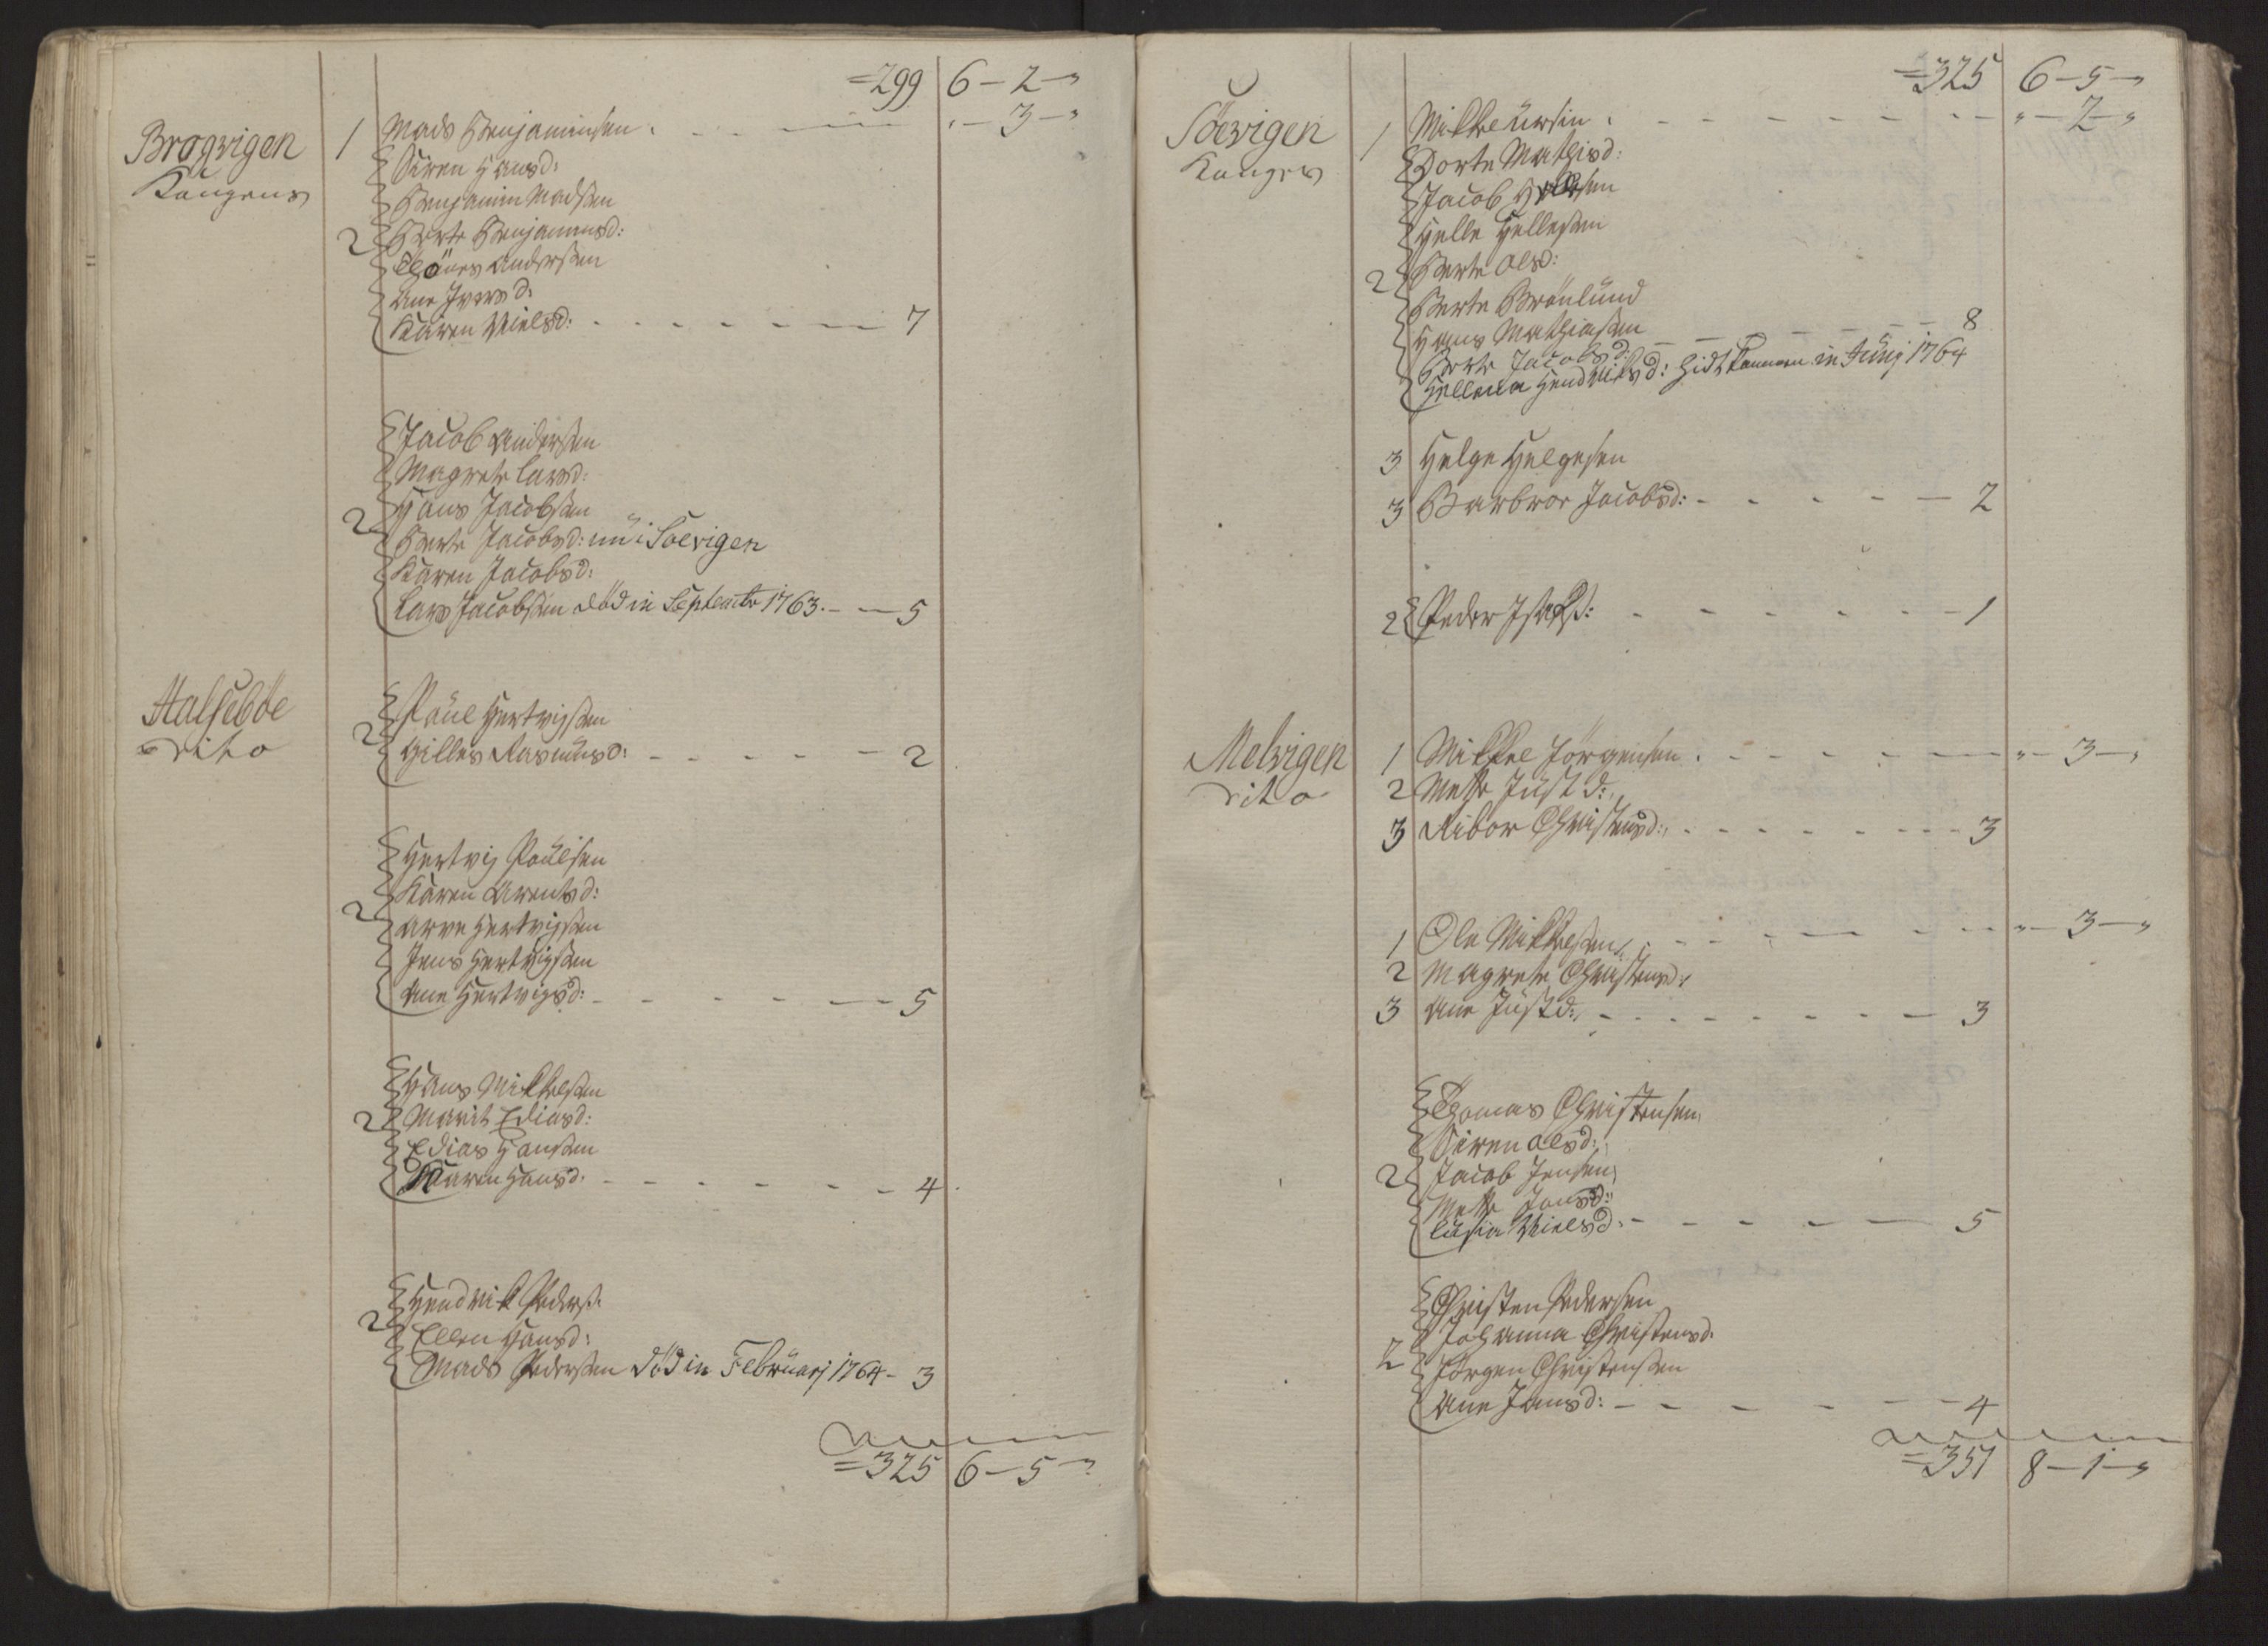 =299 6 - 2 -"
Brogvigen 1 Mads Benjaminsen . - - - " - 3 - "
Kongens Siren Hansd:
Benjamin Madsen
2 Berte Benjaminsd:
Thönes Andersen
Ane Iversd:
Karen Nielsd: - - - - - 7
Jacob Andersen
Magrete Larsd:
2 Hans Jacobsen
Berte Jacobsd: nu i Soevigen
Karen Jacobsd:
Lars Jacobsen död in Septembr 1763. - - 5
Halseböe Poül Hertvigsen
dito 2 Gilles Rasmusd: - - - - 2
Hertvig Poülsen
Karen Arentsd:
2 Arve Hertvigsen
Jens Hertvigsen
Ane Hertvigsd: - - - - - 5
Hans Mikkelsen
2 Marit Ediasd:
Edias Hansen
Karen Hansd. - - - - - - 4
Hendrik Peders:
2 Ellen Hansd:
Mads Pedersen död in Februarj 1764 - 3
=325 6 - 5 -"
=325 6 - 5 -"
Söevigen 1 Mikkel Ursin . - - - - - - " - 2 - "
Konges Dorte Mathisd:
Jacob
Helle Hellesen
2 Berte Olsd:
Berte Brönlund
Hans Mathiasen - - - - 8
Berte Jacobsd:
Hellena Hendriksd: hidkommen in Junj 1764
3 Helge Helgesen
3 Barbror Jacobsd: - - - - - 2
2 Peder - - - - - 1
Melvigen 1 Mikkel Jörgensen . - - - - - " - 3 - "
dito 2 Mette Justd:
3 Ribor Christensd: - - - - - - 3
1 Ole Mikkelsen - - - - - - " - 3 - "
2 Magrete Christensd:
3 Ane Justd: - - - - - - 3
Thomas Christensen
Siren Olsd:
2 Jacob Jensen
Mette Jansd:
Lusia Nielsd: - - - - - 5
Christen Pedersen
Johanna Christensd.
2 Jörgen Christensen
Ane Jansd: - - - - - 4
=351 8 - 1 -"